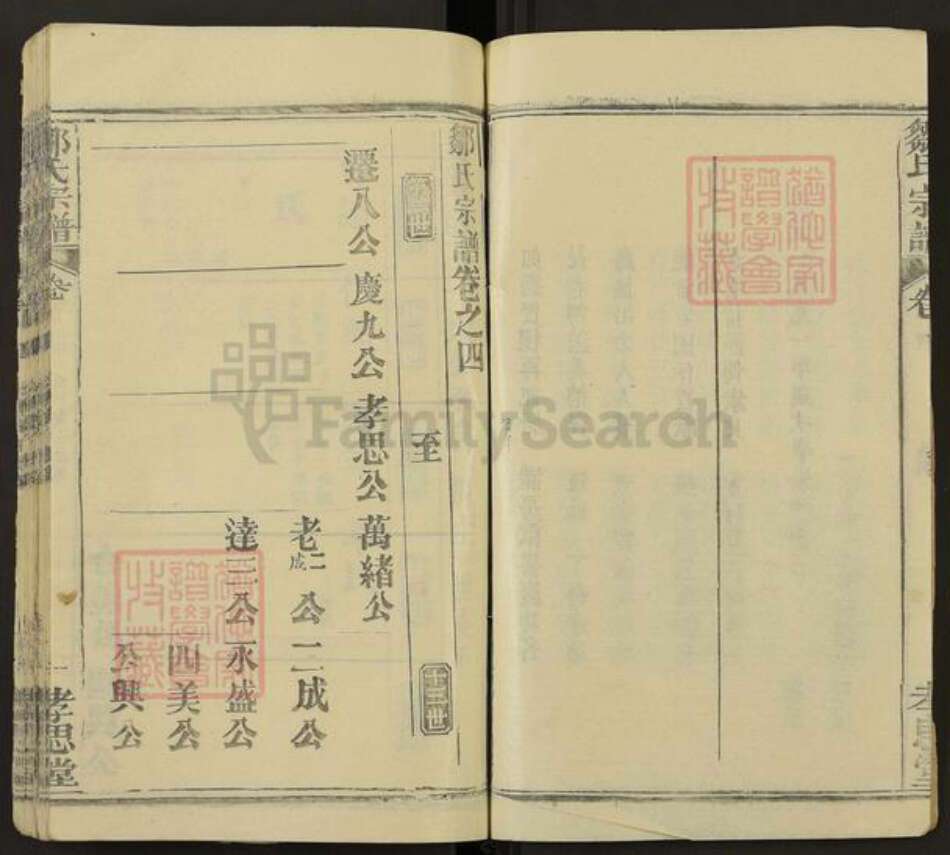 鄒氏宗譜
卷
鄒氏宗譜卷之四
世
至
十三世
遷八公 慶九公 孝思公 萬緒公
老二成公 二成公
達三公 永盛公
四美公
公興公
鄒氏宗譜
卷
一
孝思堂
FamilySearch